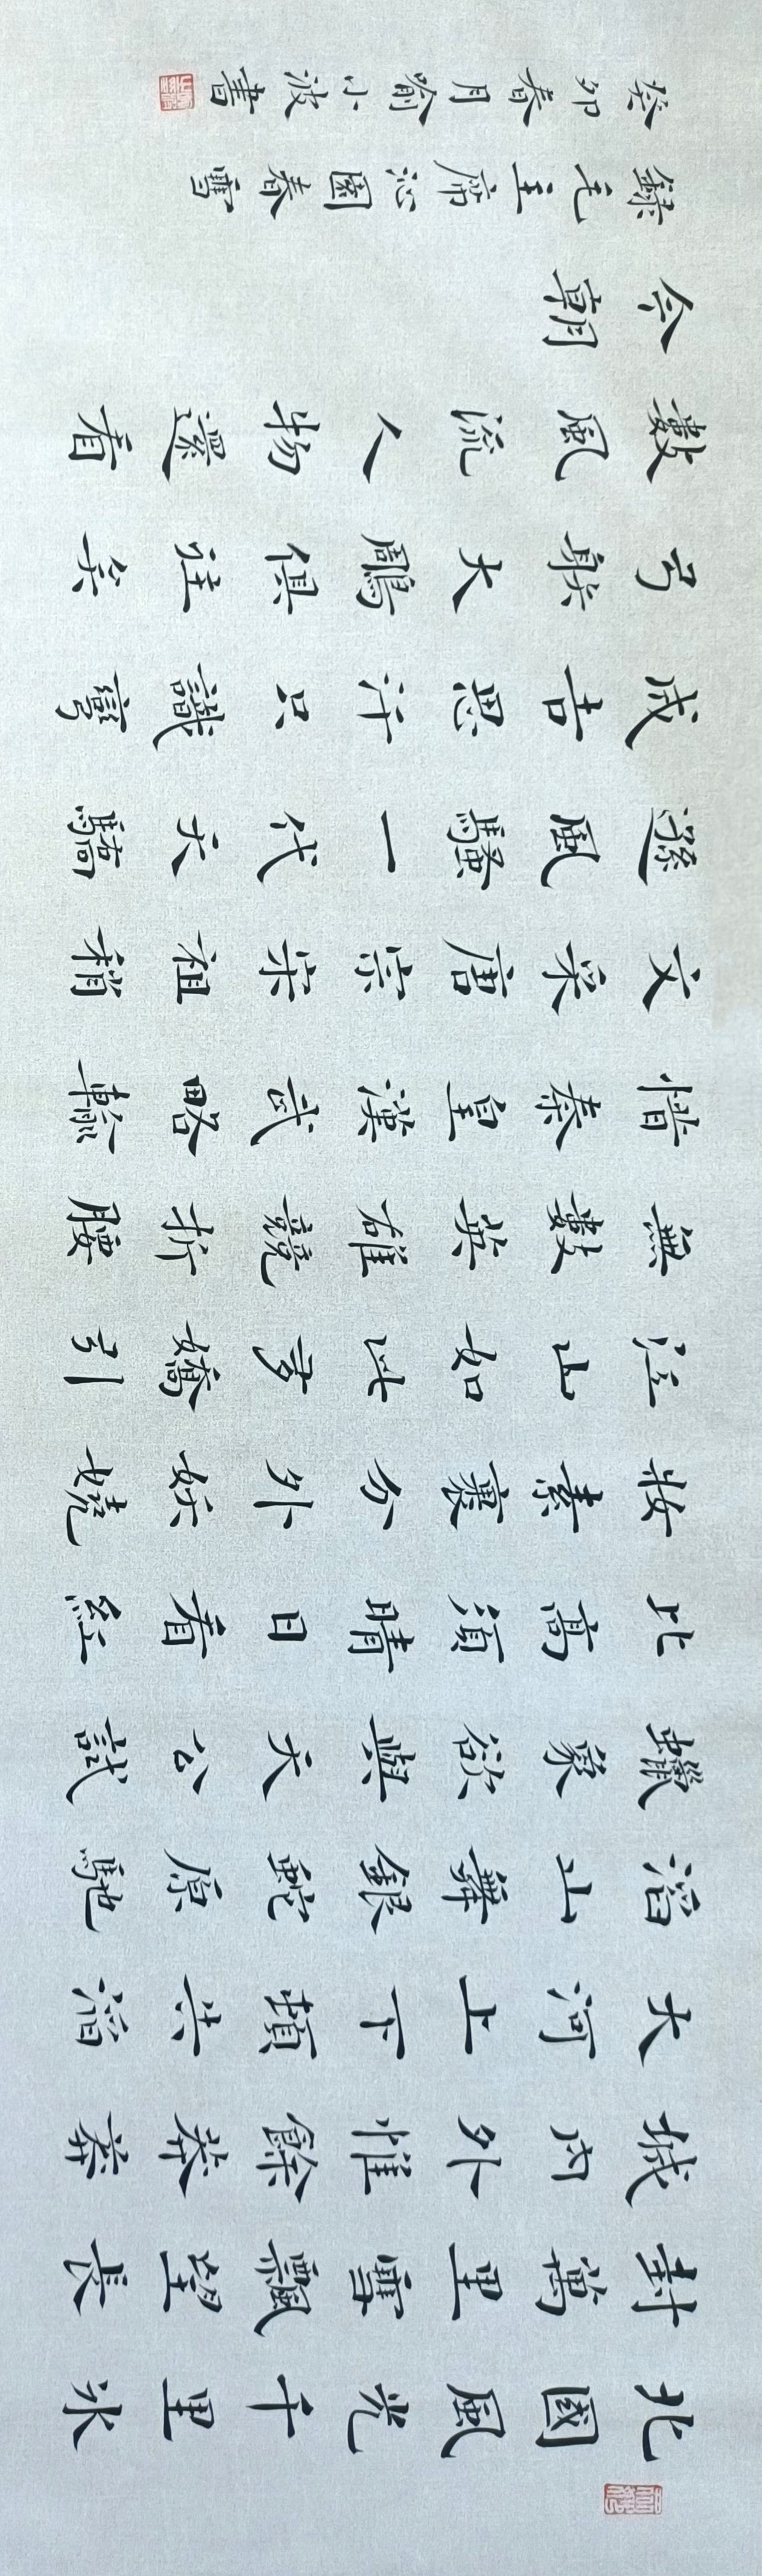 北國風光千里冰
封萬里雪飄望長
城內外惟餘莽莽
大河上下頓失滔
滔山舞銀蛇原馳
蠟象欲與天公試
比高須晴日看紅
妝素裹分外妖嬈
江山如此多嬌引
無數英雄競折腰
惜秦皇漢武略輸
文采唐宗宋祖稍
遜風騷一代天驕
成吉思汗只識彎
弓射大鵰俱往矣
數風流人物還看
今朝
錄毛主席沁園春雪
癸卯春月喻小波書